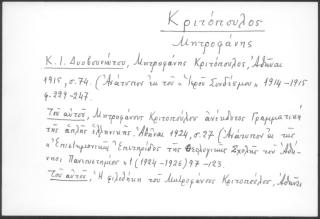 Κριτόπουλος
Μητροφάνης
Κ. Ι. Δυοβουνιώτου, Μητροφάνης Κριτόπουλος, Ἀθῆναι
1915, σ. 74. (Ἀνάτυπον ἐκ τοῦ «Ἱεροῦ Συνδέσμου» 1914-1915
φ. 229-247.
Τοῦ αὐτοῦ, Μητροφάνους Κριτοπούλου ἀνέκδοτος Γραμματικὴ
τῆς ἁπλῆς ἑλληνικῆς. Ἀθῆναι 1924, σ. 27 (Ἀνάτυπον ἐκ τῆς
«Ἐπιστημονικῆς Ἐπετηρίδος τῆς Θεολογικῆς Σχολῆς τοῦ Ἀθή-
νησι Πανεπιστημίου» 1 (1924-1926) 97-123.
Τοῦ αὐτοῦ, Ἡ φιλοθήκη τοῦ Μητροφάνους Κριτοπούλου, Ἀθῆναι